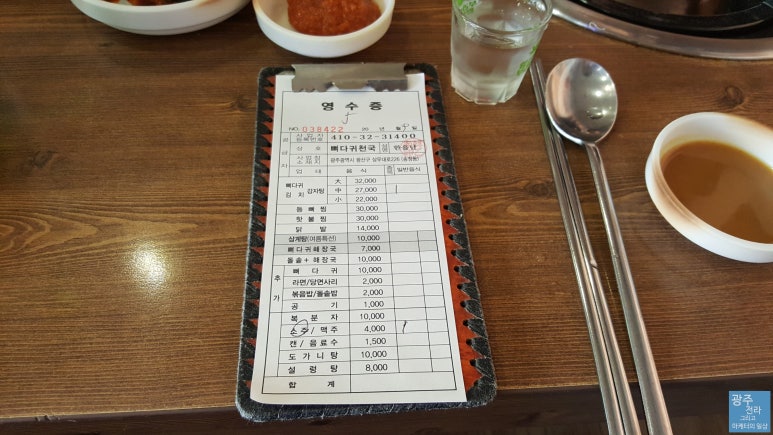 영 수 증
5
NO. 038422 20 년 월 일
공급자
사업자등록번호 410-32-31400
상 호 뼈다귀천국
사업장소재지 광주광역시 광산구 상무대로226 (송정동)
업 태 음 식 일반음식
뼈다귀 김 치 감자탕 大 32,000
中 27,000 1
小 22,000
등 뼈 찜 30,000
핫 불 찜 30,000
닭 발 14,000
삼계탕(여름특선) 10,000
뼈다귀해장국 7,000
돌솥+해장국 10,000
추가
뼈 다 귀 10,000
라면/당면사리 2,000
볶음밥/돌솥밥 2,000
공 기 1,000
복 분 자 10,000
소주/맥주 4,000 1
캔/음료수 1,500
도 가 니 탕 10,000
설 렁 탕 8,000
합 계
광주
전라
그리고
마케터의 일상